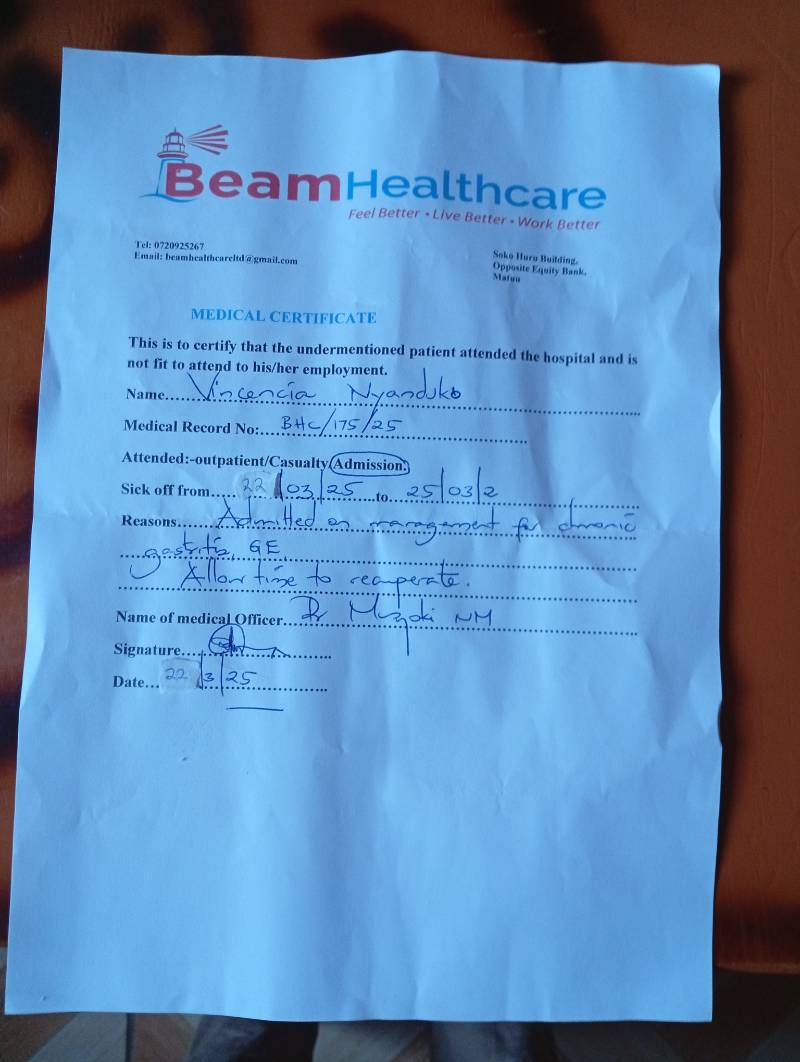 BeamHealthcare
Feel Better • Live Better • Work Better
Tel: 0720925267
Email: beamhealthcareltd@gmail.com
Soko Huru Building,
Opposite Equity Bank,
Matuu
MEDICAL CERTIFICATE
This is to certify that the undermentioned patient attended the hospital and is
not fit to attend to his/her employment.
Name......Vincencia Nyanduko
Medical Record No:....BHC/175/25
Attended:-outpatient/Casualty/Admission.
Sick off from.....22/03/25.....to...25/03/2
Reasons......Admitted on management for chronic
gastritis, GE.
Allow time to recuperate.
Name of medical Officer...Dr NM
Signature...
Date...22/3/25